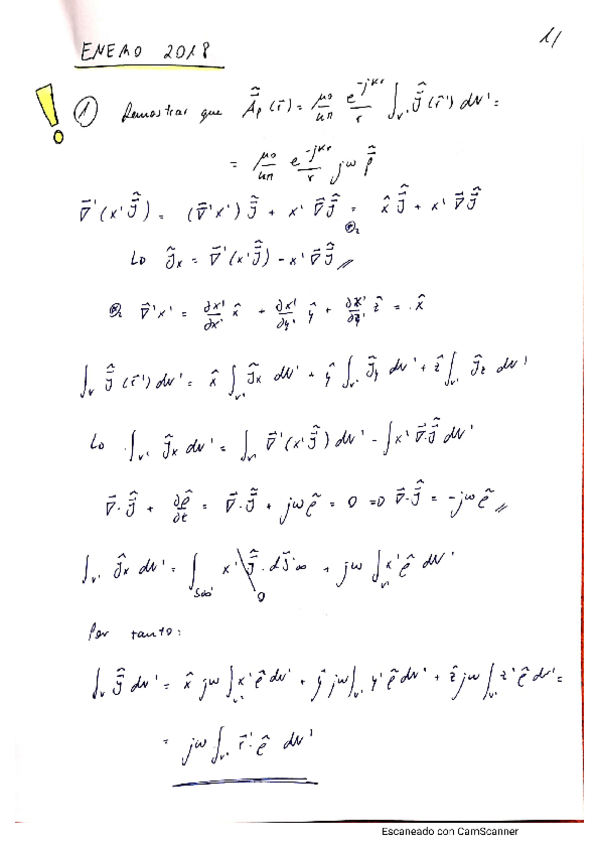 1/
ENERO 2018
! ① Demostrar que Ã_p(r̄) = μ₀/4π e^{-jkr}/r ∫_{v'} J̃(r̄') dv' =
= μ₀/4π e^{-jkr}/r jω p̃
∇'(x'J̃) = (∇'x')J̃ + x'∇J̃ = x̂ J̃ + x'∇J̃
Lo J̃x = ∇'(x'J̃) - x'∇J̃ //
∇'x' = ∂x'/∂x' x̂ + ∂x'/∂y' ŷ + ∂x'/∂z' ẑ = x̂
∫_{v'} J̃(r̄') dv' = x̂ ∫_{v'} J̃x dv' + ŷ ∫_{v'} J̃y dv' + ẑ ∫_{v'} J̃z dv'
Lo ∫_{v'} J̃x dv' = ∫_{v'} ∇'(x'J̃) dv' - ∫ x'∇·J̃ dv'
∇·J̃ + ∂ρ̃/∂t = ∇·J̃ + jωρ̃ = 0 => ∇·J̃ = -jωρ̃ //
∫_{v'} J̃x dv' = ∫_{S∞'} x' J̃·dS̄∞ + jω ∫_{v'} x'ρ̃ dv'
0
Por tanto:
∫_{v'} J̃ dv' = x̂ jω ∫_{v'} x'ρ̃ dv' + ŷ jω ∫_{v'} y'ρ̃ dv' + ẑ jω ∫_{v'} z'ρ̃ dv' =
= jω ∫_{v'} r̄'·ρ̃ dv'
Escaneado con CamScanner